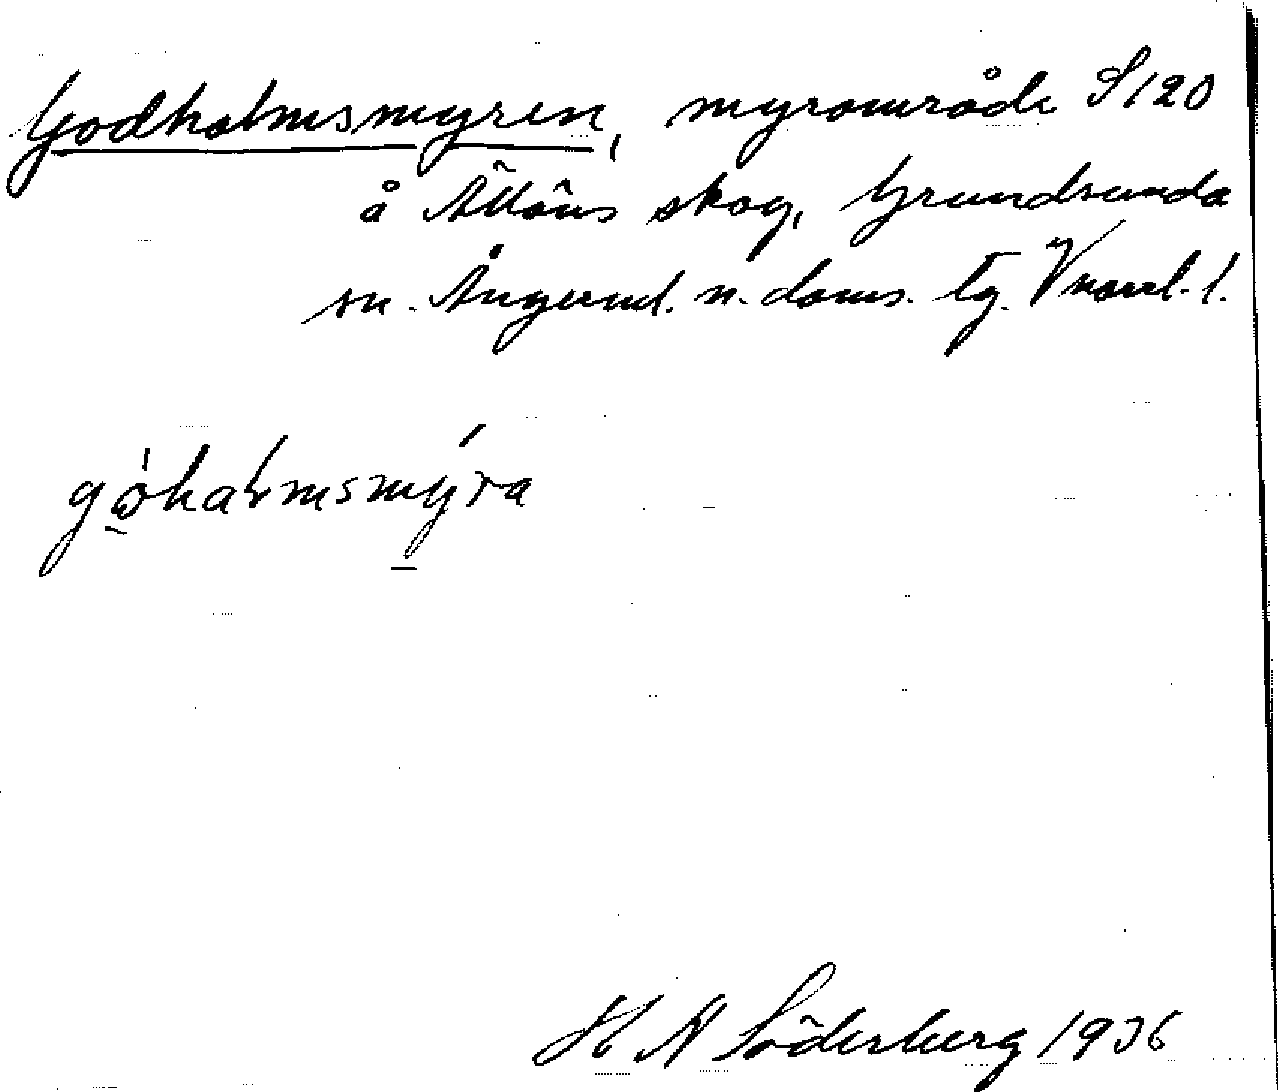 Godholmsmyren, myrområde S120
å Ällöns skog, Grundsunda
sn. Ångerml. n. doms. tg. Vnorrl. l.
góhalmsmýra
H N Söderberg 1936